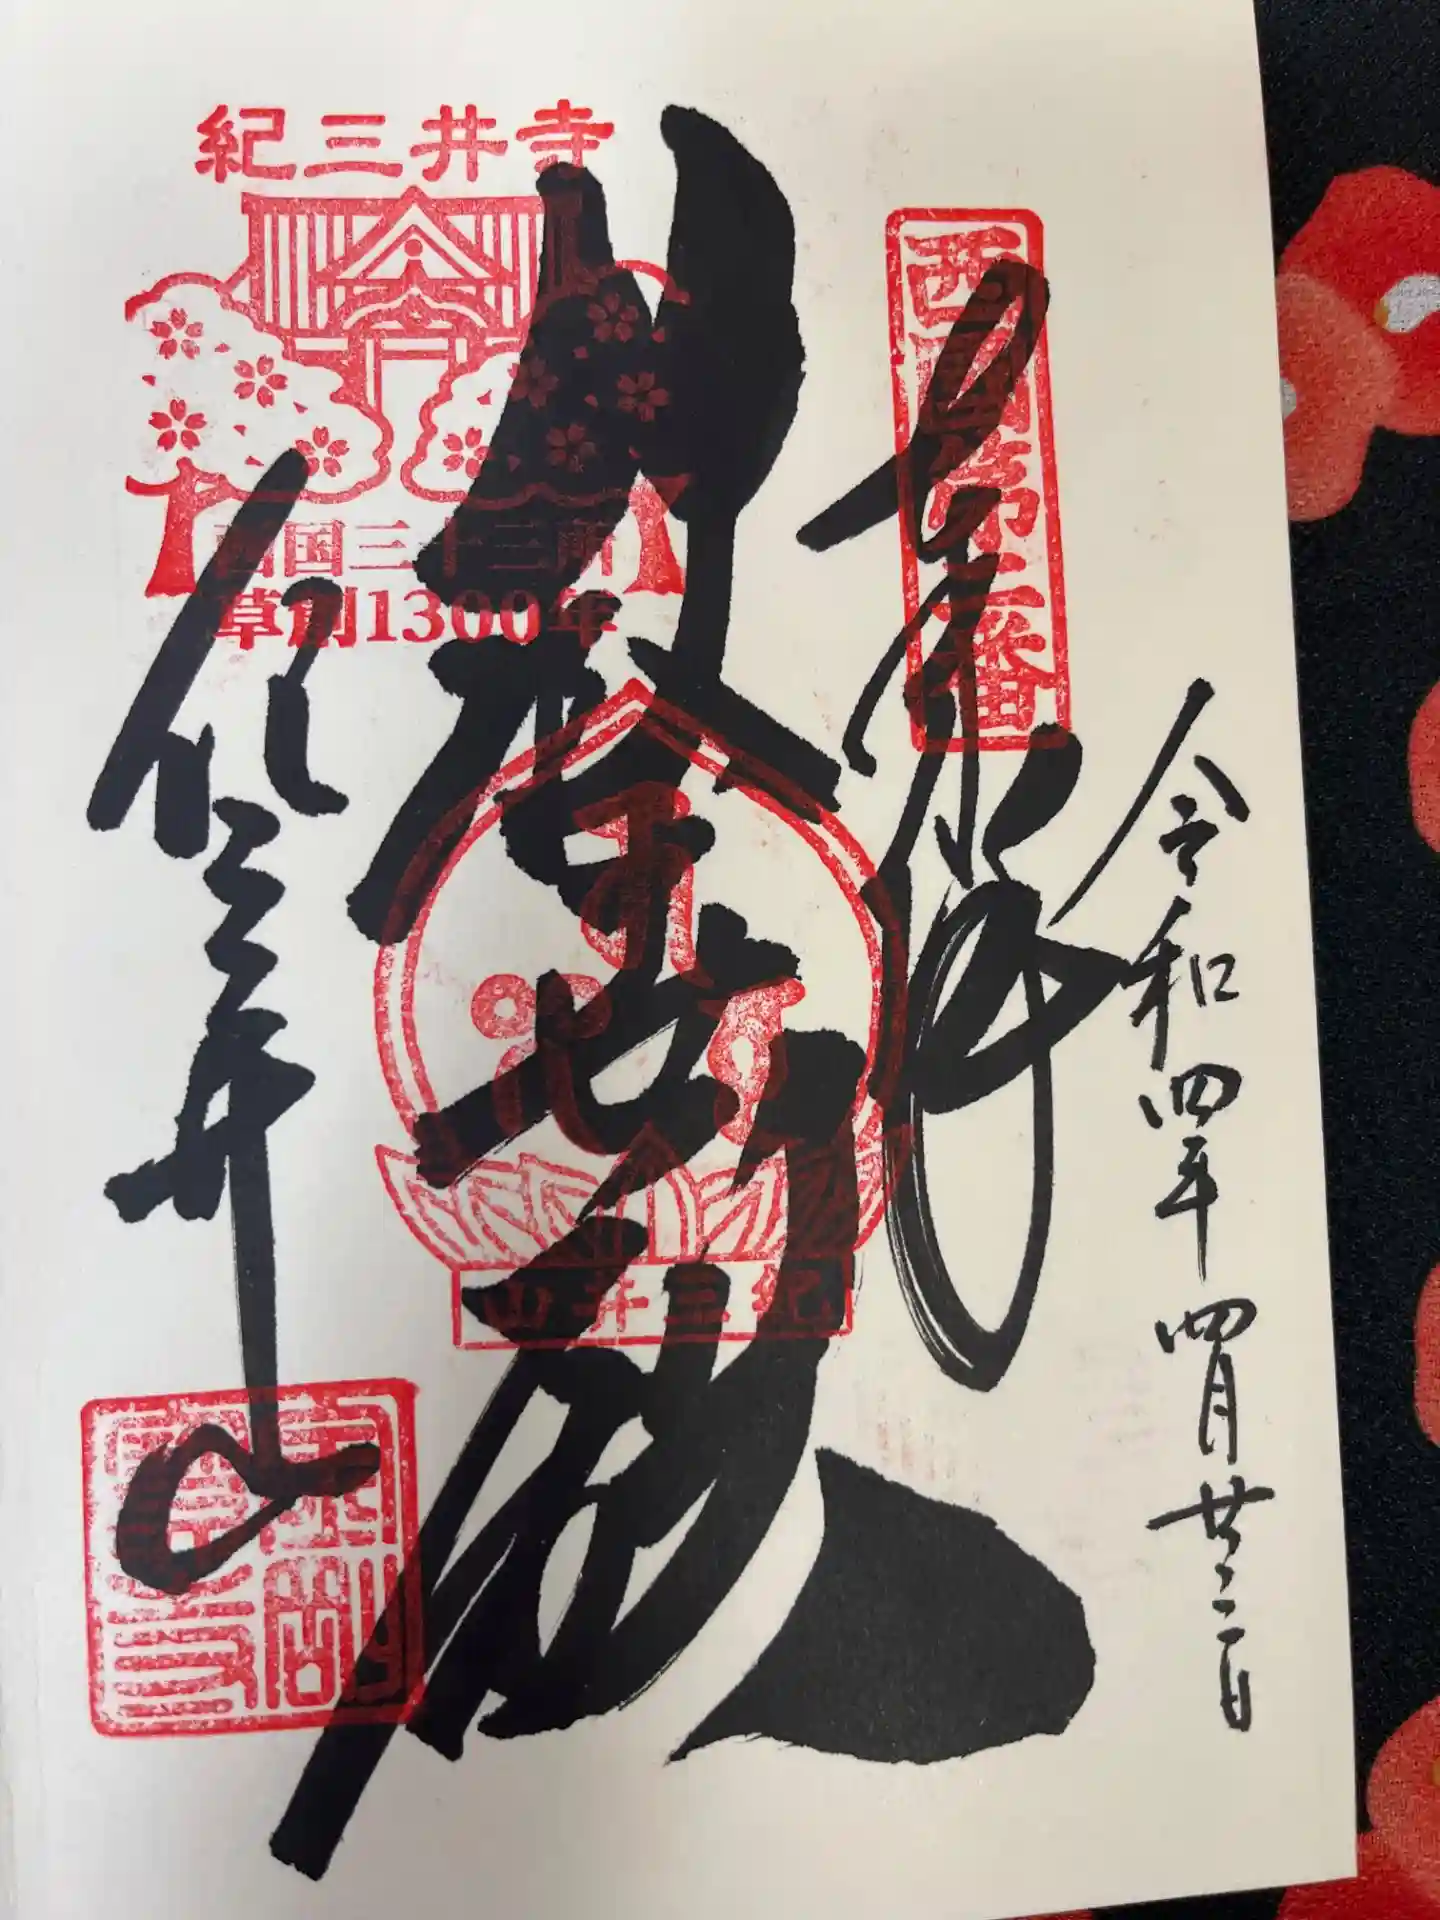 令和四年四月廿二日
西国第二番
奉拝
救世殿
紀三井寺
西国三十三所
草創1300年
紀三井山
紀三井山